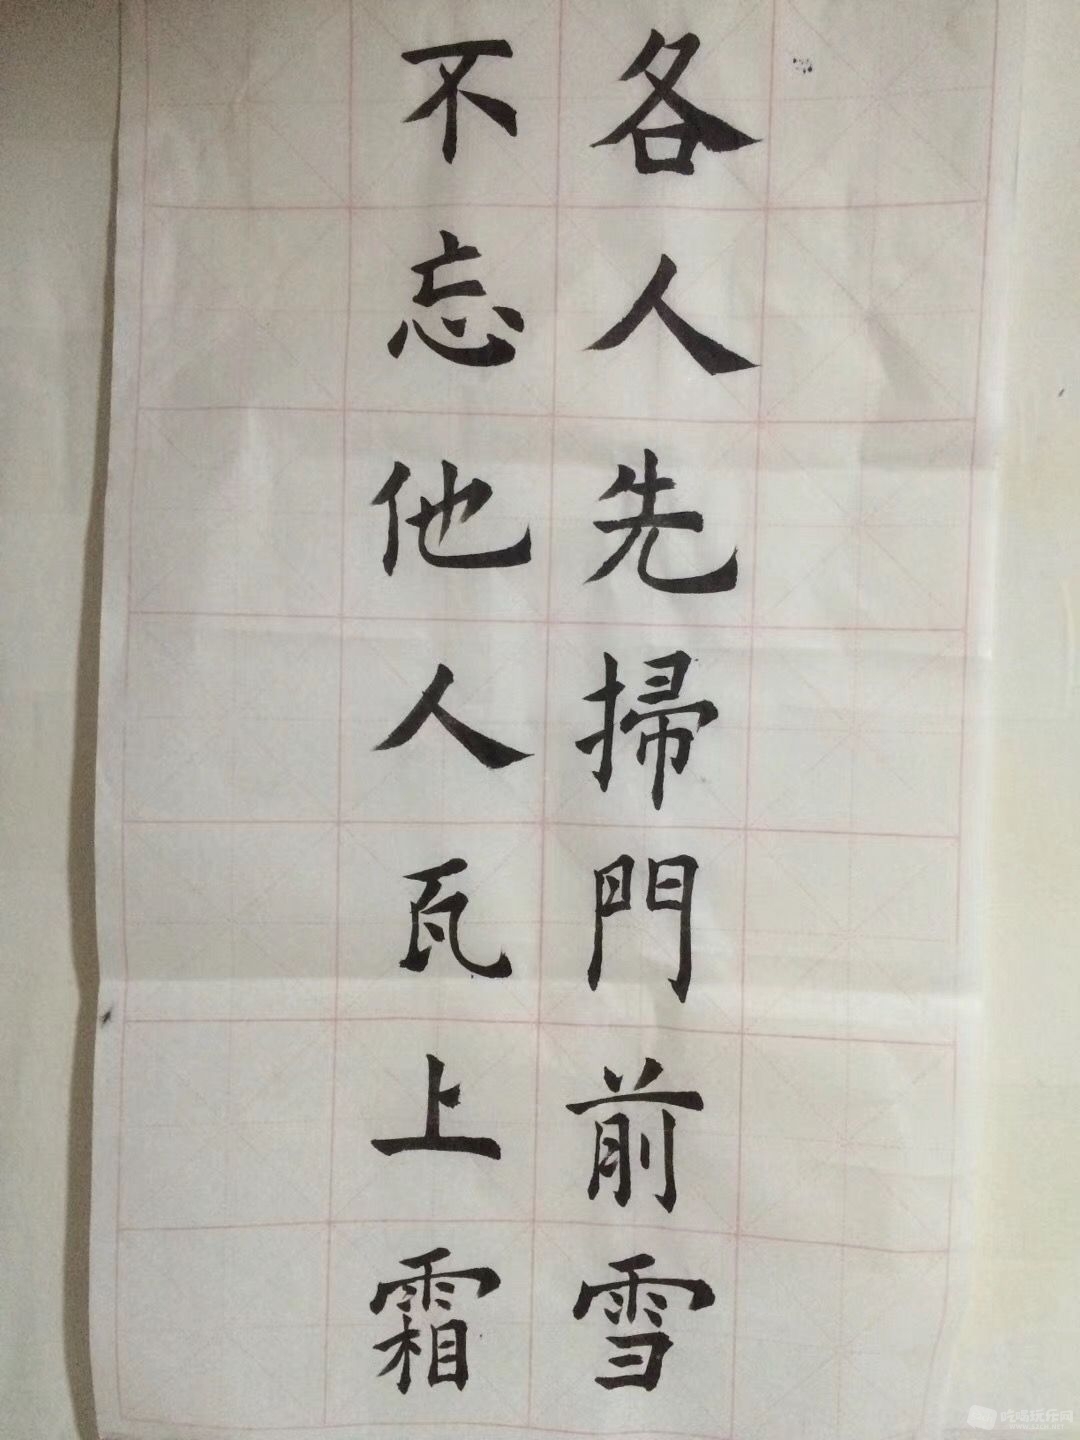 各人先掃門前雪
不忘他人瓦上霜